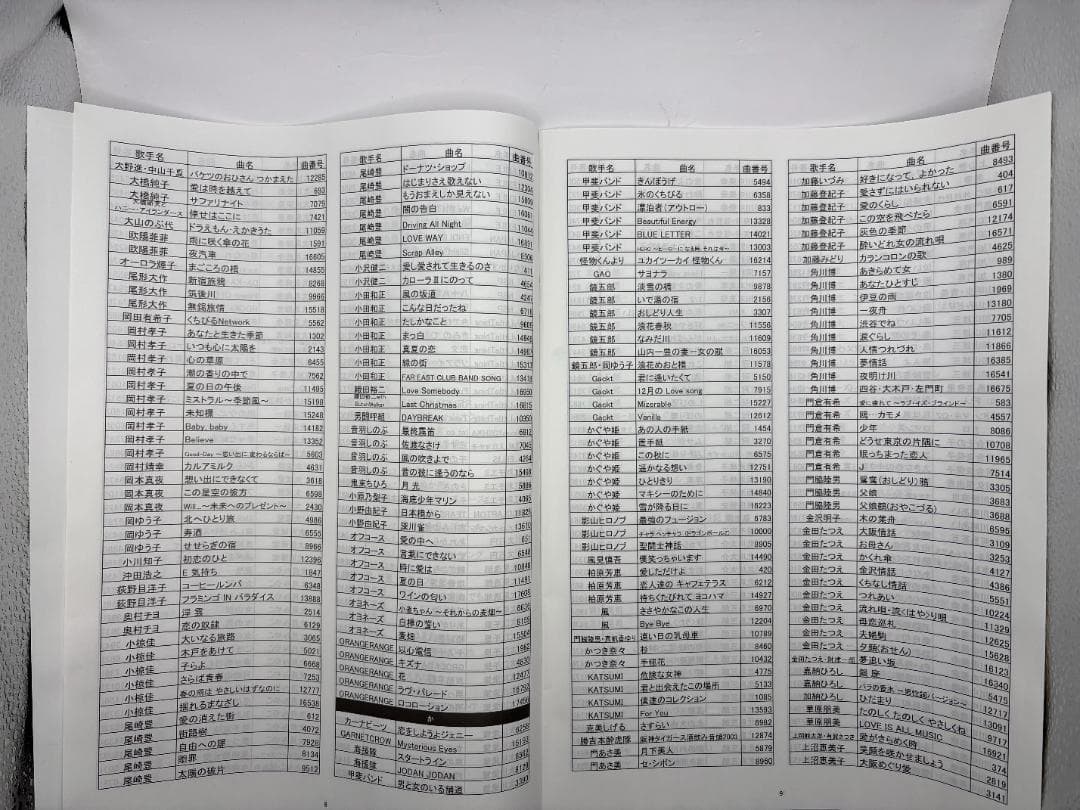 歌手名 曲名 曲番号
大野進・中山千夏 バケツのおひさん つかまえた 12285
大橋純子 愛は時を越えて 693
大橋純子 サファリナイト 7079
倖せはここに 7421
大山のぶ代 ドラえもん・えかきうた 11059
欧陽菲菲 雨に咲く華の花 1591
欧陽菲菲 夜汽車 16605
オーロラ輝子 まごころの橋 14855
尾形大作 新宿旅鴉 8268
尾形大作 筑後川 9966
尾形大作 無錫旅情 15518
岡田有希子 くちびるNetwork 5562
岡村孝子 あなたと生きた季節 1302
岡村孝子 いつも心に太陽を 2143
岡村孝子 心の草原 6455
岡村孝子 潮の香りの中で 7562
岡村孝子 夏の日の午後 11495
岡村孝子 ミストラル～季節風～ 15198
岡村孝子 未知標 15248
岡村孝子 Baby, baby 14182
岡村孝子 Believe 13352
岡村孝子 Good-Day ～思い出に変わるならば～ 5603
岡村靖幸 カルアミルク 4631
岡本真夜 想い出にできなくて 3618
岡本真夜 この星空の彼方 6598
岡本真夜 Will...～未来へのプレゼント～ 2430
岡ゆう子 北へひとり旅 4986
岡ゆう子 寿酒 6555
岡ゆう子 せせらぎの宿 8966
小川知子 初恋のひと 12396
沖田浩之 E気持ち 1847
荻野目洋子 コーヒールンバ 6348
荻野目洋子 フラミンゴ IN パラダイス 13888
奥村チヨ 浮雲 2514
奥村チヨ 恋の奴隷 6129
小椋佳 大いなる旅路 3065
小椋佳 木戸をあけて 5021
小椋佳 子らよ 6668
小椋佳 さらば青春 7253
小椋佳 春の雨は やさしいはずなのに 12777
小椋佳 揺れるまなざし 16538
尾崎豊 愛の消えた街 612
尾崎豊 街路樹 4072
尾崎豊 自由への扉 7928
尾崎豊 贖罪 8134
尾崎豊 太陽の破片 9512
歌手名 曲名 曲番号
尾崎豊 ドーナツ・ショップ 10812
尾崎豊 はじまりさえ歌えない 12304
尾崎豊 もうおまえしか見えない 15809
尾崎豊 闇の告白 16061
尾崎豊 Driving All Night 11044
尾崎豊 LOVE WAY 16831
尾崎豊 Scrap Alley 8306
小沢健二 愛し愛されて生きるのさ 411
小沢健二 カローラⅡにのって 4654
小田和正 風の坂道 4247
小田和正 こんな日だったね 6718
小田和正 たしかなこと 9606
小田和正 まっ白 14846
小田和正 真夏の恋 14661
小田和正 緑の街 15313
小田和正 FAR EAST CLUB BAND SONG 13418
織田裕二 Love Somebody 16850
Last Christmas 16815
男闘呼組 DAYBREAK 10590
音羽しのぶ 最終霧笛 6912
音羽しのぶ 佐渡なさけ 7045
音羽しのぶ 風の吹きよで 4264
音羽しのぶ 昔の彼に逢うのなら 15498
鬼束ちひろ 月光 5886
小野乃梨子 海底少年マリン 4095
小野由紀子 日本橋から 11825
小野由紀子 深川雀 13610
オフコース 愛の中へ 651
オフコース 言葉にできない 6548
オフコース 時に愛は 10888
オフコース 夏の日 11481
オフコース ワインの匂い 17608
オヨネーズ 小春ちゃん～それからの麦畑～ 6630
オヨネーズ 白樺の誓い 8165
オヨネーズ 麦畑 15504
ORANGERANGE 以心電信 1962
ORANGERANGE キズナ 4830
ORANGERANGE 花 12477
ORANGERANGE ラヴ・パレード 16762
ORANGERANGE ロコローション 17456
か
カーナビーツ 恋をしようよジェニー 6256
GARNETCROW Mysterious Eyes 15193
海援隊 スタートライン 8816
海援隊 JODAN JODAN 8129
甲斐バンド 男と女のいる舗道 3393
8
歌手名 曲名 曲番号
甲斐バンド きんぽうげ 5494
甲斐バンド 氷のくちびる 6358
甲斐バンド 漂泊者(アウトロー) 833
甲斐バンド Beautiful Energy 13328
甲斐バンド BLUE LETTER 14021
甲斐バンド 13003
怪物くんより ユカイツーカイ 怪物くん 16214
GAO サヨナラ 7157
鏡五郎 淡雪の橋 9878
鏡五郎 いで湯の宿 2156
鏡五郎 おしどり人生 3307
鏡五郎 浪花春秋 11556
鏡五郎 なみだ川 11609
鏡五郎 山内一豊の妻一女の譜 16053
鏡五郎・岡ゆう子 浪花めおと橋 11578
Gackt 君に逢いたくて 5150
Gackt 12月のLove song 7915
Gackt Mizerable 15227
Gackt Vanilla 12612
かぐや姫 あの人の手紙 1454
かぐや姫 置手紙 3270
かぐや姫 この秋に 6575
かぐや姫 遥かなる想い 12751
かぐや姫 ひとりきり 13190
かぐや姫 マキシーのために 14840
かぐや姫 雪が降る日に 16223
影山ヒロノブ 最強のフュージョン 6783
影山ヒロノブ 10000
影山ヒロノブ 聖闘士神話 8905
風見慎吾 僕笑っちゃいます 14490
柏原芳恵 愛しただけよ 420
柏原芳恵 恋人達の キャフェテラス 6212
柏原芳恵 待ちくたびれて ヨコハマ 14927
風 ささやかなこの人生 6970
風 Bye Bye 12204
門脇陸男・真帆香ゆり 遠い日の乳母車 10789
かつき奈々 粉 8460
かつき奈々 手毬花 10432
KATSUMI 危険な女神 4775
KATSUMI 君と出会えたこの場所 5133
KATSUMI 信達のコレクション 1085
KATSUMI For You 13593
克美しげる さすらい 6982
勝吉本酔虎隊 阪神タイガース酒飲み音頭2000 12874
門あさ美 月下美人 5879
門あさ美 セ・シボン 8960
9
歌手名 曲名 曲番号
加藤いづみ 好きになって、よかった 8493
加藤登紀子 愛さずにはいられない 404
加藤登紀子 愛のくらし 617
加藤登紀子 この空を飛べたら 6591
加藤登紀子 灰色の季節 12174
加藤登紀子 酔いどれ女の流れ唄 16571
加藤みどり カランコロンの歌 4625
角川博 あきらめて女 989
角川博 あなたひとすじ 1380
角川博 伊豆の雨 1969
角川博 一夜舟 13180
角川博 渋谷でね 7705
角川博 涙ぐらし 11612
角川博 人情つれづれ 11866
角川博 夢情話 16385
角川博 夜明け川 16541
角川博 四谷・大木戸・左門町 16675
門倉有希 583
門倉有希 鴎-カモメ 4557
門倉有希 少年 8086
門倉有希 どうせ東京の片隅に 10708
門倉有希 眠っちまった恋人 11965
門倉有希 J 7514
門脇陸男 鴛鴦(おしどり)鴉 3305
門脇陸男 父娘 3683
門脇陸男 父娘鶴(おやこづる) 3688
金沢明子 木の葉舟 6595
金田たつえ 大阪情話 3253
金田たつえ お母さん 3109
金田たつえ かくれ傘 4127
金田たつえ 金沢情話 4386
金田たつえ くちなし情話
金田たつえ つれあい 5551
金田たつえ 流れ唄・流くはやり唄 10224
金田たつえ 母恋巡礼 11329
金田たつえ 夫婚駒 12625
金田たつえ 夕顔(おせん) 15628
夢追い坂 16123
嘉納ひろし 銀座 16340
嘉納ひろし 5475
加納ひろし ひだまり 12717
華原朋美 たのしく たのしく やさしくね 13091
華原朋美 LOVE IS ALL MUSIC 9717
愛がきらめく時 16921
上沼恵美子 笑顔を咲かせましょう 374
上沼恵美子 大阪めぐり愛 2819
3141